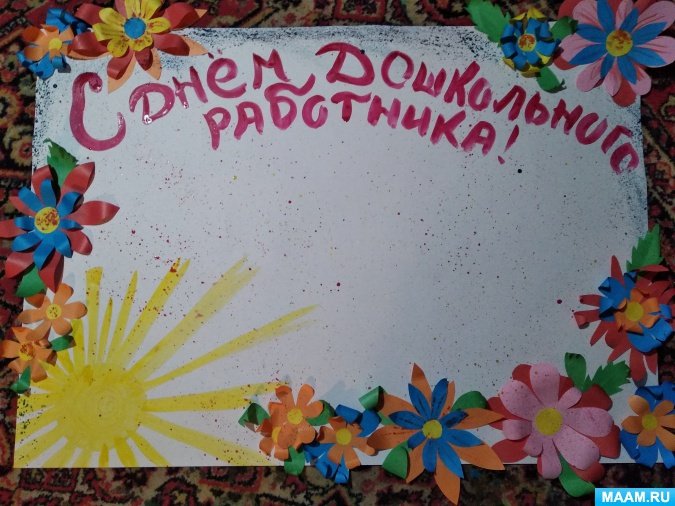 С ДНЁМ ДОШКОЛЬНОГО
РАБОТНИКА!
MAAM.RU